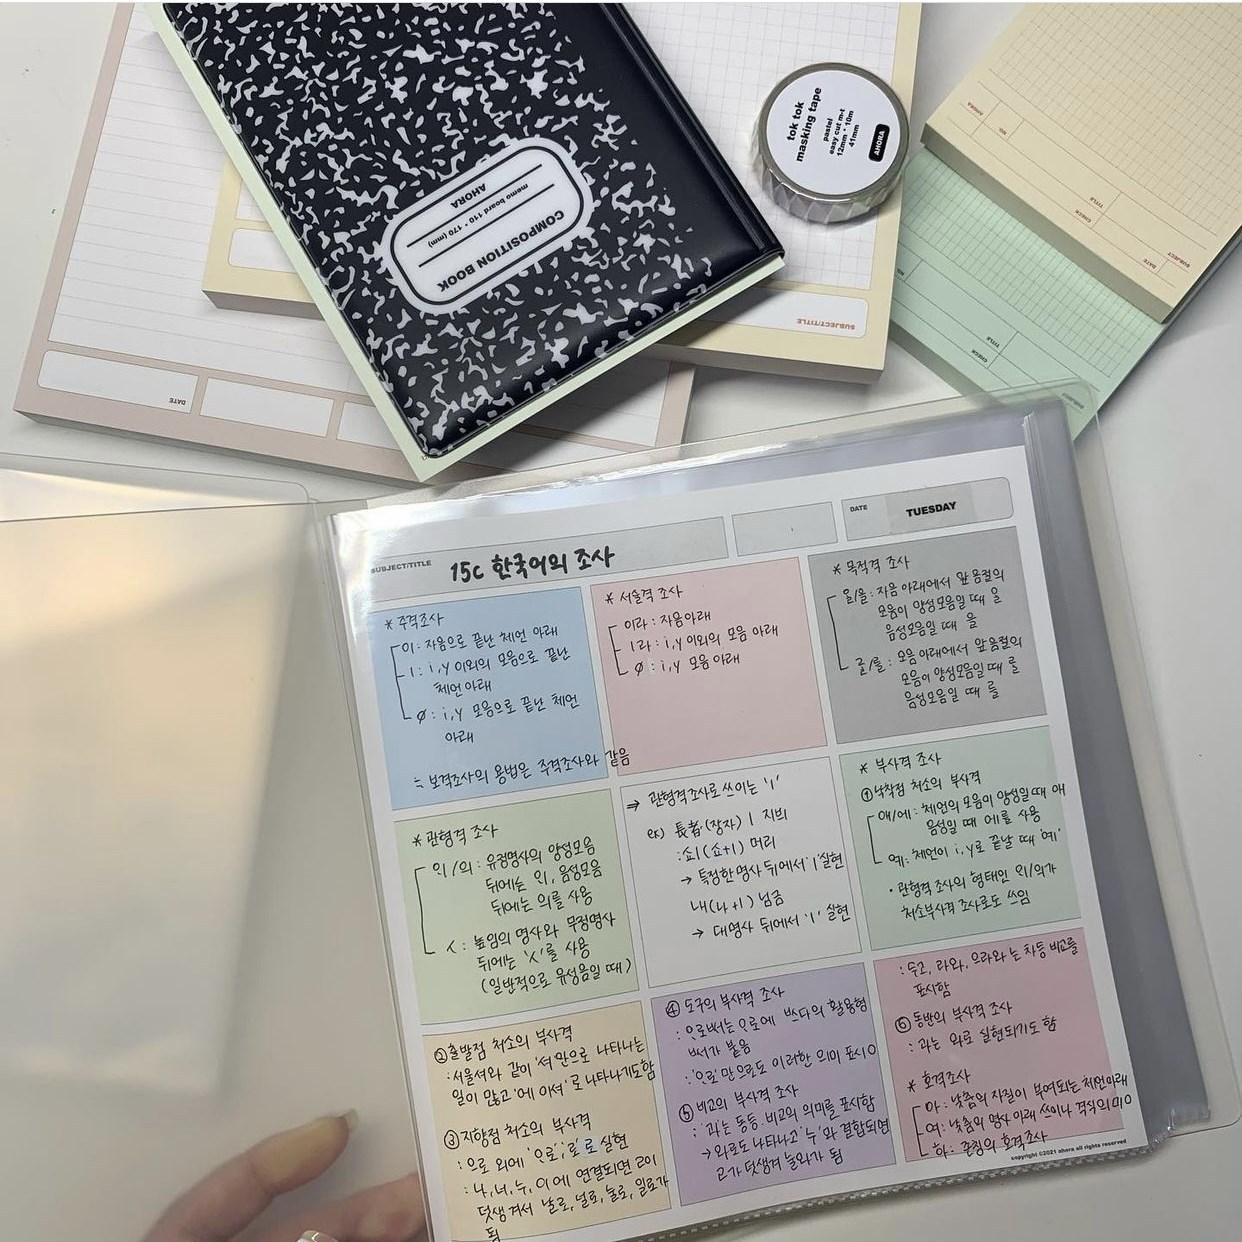 COMPOSITION BOOK
memo board 110 * 170 (mm)
AHORA
tok tok
masking tape
pastel
easy cut m-t
12mm * 10m
41mm
AHORA
DATE
SUBJECT/TITLE
AHORA
NO.
TITLE
CHECK
DATE
SUBJECT
NO.
TITLE
CHECK
SUBJECT/TITLE
15C 한국어의 조사
DATE
TUESDAY
* 주격조사
이 : 자음으로 끝난 체언 아래
ㅣ : i, y 이외의 모음으로 끝난
체언 아래
∅ : i, y 모음으로 끝난 체언
아래
보격조사의 용법은 주격조사와 같음
* 서술격 조사
이라 : 자음아래
ㅣ라 : i, y 이외의 모음 아래
∅ : i, y 모음 아래
* 목적격 조사
ᄋᆞᆯ/을 : 자음 아래에서 앞 음절의
모음이 양성모음일 때 ᄋᆞᆯ
음성모음일 때 을
ᄅᆞᆯ/를 : 모음 아래에서 앞음절의
모음이 양성모음일 때 ᄅᆞᆯ
음성모음일 때 를
* 관형격 조사
ᄋᆡ/의 : 유정명사의 양성모음
뒤에는 ᄋᆡ, 음성모음
뒤에는 의를 사용
ㅅ : 높임의 명사와 무정명사
뒤에는 'ㅅ'를 사용
(일반적으로 유성음일 때)
⇒ 관형격조사로 쓰이는 'ㅣ'
ex) 長者(장자)ㅣ 지븨
: 쇠(쇼+ㅣ) 머리
→ 특정한 명사 뒤에서 'ㅣ' 실현
내(나+ㅣ) 님금
→ 대명사 뒤에서 'ㅣ' 실현
* 부사격 조사
① 낙착점 처소의 부사격
애/에 : 체언의 모음이 양성일 때 애
음성일 때 에를 사용
예 : 체언이 i, y로 끝날 때 '예'
• 관형격 조사의 형태인 ᄋᆡ/의가
처소부사격 조사로도 쓰임
② 출발점 처소의 부사격
: 서울셔와 같이 '셔'만으로 나타나는
일이 많고 '에 이셔'로 나타나기도함
③ 지향점 처소의 부사격
: 으로 외에 'ᄋᆞ로', '로'로 실현
: 나, 너, 누, 이에 연결되면 ㄹ이
덧생겨서 날로, 널로, 눌로, 일로가
됨
④ 도구의 부사격 조사
: ᄋᆞ로ᄡᅥ는 ᄋᆞ로에 ᄡᅳ다의 활용형
ᄡᅥ가 붙음
: 'ᄋᆞ로'만으로도 이러한 의미 표시 O
⑤ 비교의 부사격 조사
: '과'는 동등. 비교의 의미를 표시함
→ 와로도 나타나고 '누'와 결합되면
ㄹ가 덧생겨 눌와가 됨
: 두고, 라와, 으라와 는 차등 비교를
표시함
⑥ 동반의 부사격 조사
: 과는 와로 실현되기도 함
* 호격조사
아 : 낮춤의 자질이 부여되는 체언아래
여 : 낮춤의 명사 아래 쓰이나 격식의 의미 O
하 : 존칭의 호격조사
copyright ©2021 ahora all rights reserved